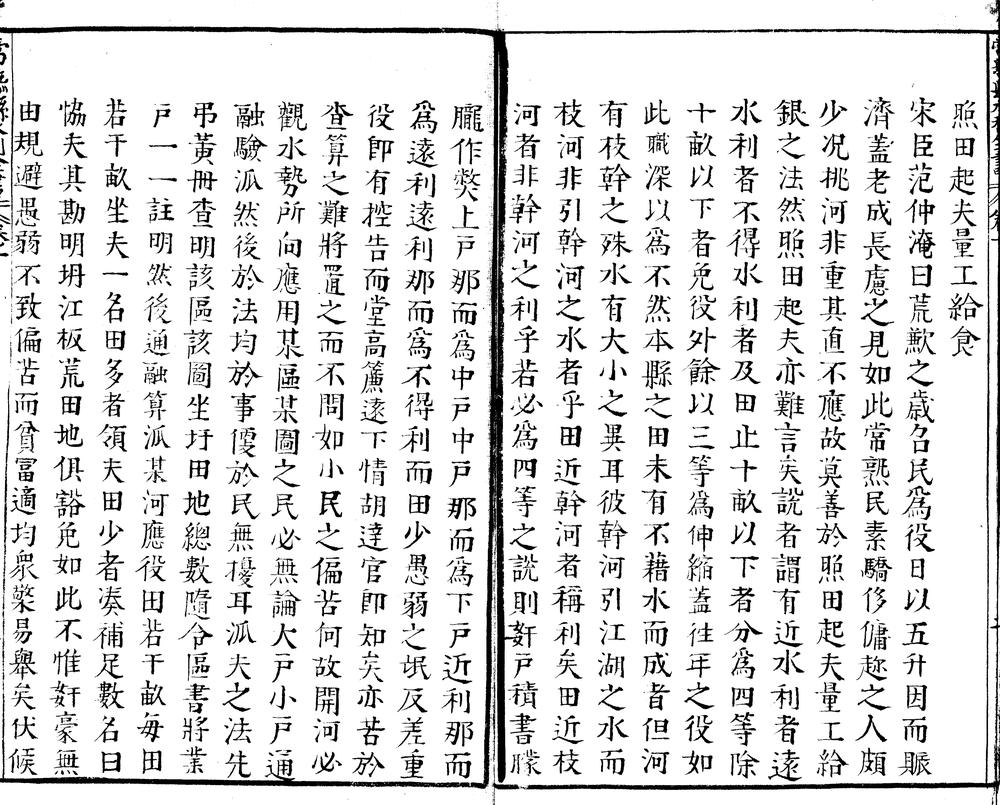 照田起夫量工給食
宋臣范仲淹曰荒歉之歲召民爲役日以五升因而賑
濟蓋老成長慮之見如此常熟民素驕侈傭趂之人頗
少况挑河非重其直不應故莫善於照田起夫量工給
銀之法然照田起夫亦難言矣説者謂有近水利者遠
水利者不得水利者及田止十畝以下者分爲四等除
十畝以下者免役外餘以三等爲伸縮蓋徃年之役如
此職深以爲不然本縣之田未有不藉水而成者但河
有枝幹之殊水有大小之異耳彼幹河引江湖之水而
枝河非引幹河之水者乎田近幹河者稱利矣田近枝
河者非幹河之利乎若必爲四等之説則奸戸積書朦
朧作弊上戸那而爲中戸中戸那而爲下戸近利那而
爲遠利遠利那而爲不得利而田少愚弱之氓反差重
役卽有控告而堂高簾遠下情胡逹官卽知矣亦苦於
查算之難將置之而不問如小民之偏苦何故開河必
觀水勢所向應用某區某圖之民必無論大戸小戸通
融驗派然後於法均於事便於民無擾耳派夫之法先
弔黃冊查明該區該圖坐圩田地總數隨令區書將業
戸一一註明然後通融算派某河應役田若干畝每田
若干畝坐夫一名田多者領夫田少者湊補足數名曰
恊夫其勘明坍江板荒田地俱豁免如此不惟奸豪無
由規避愚弱不致偏苦而貧富適均衆擎易舉矣伏候